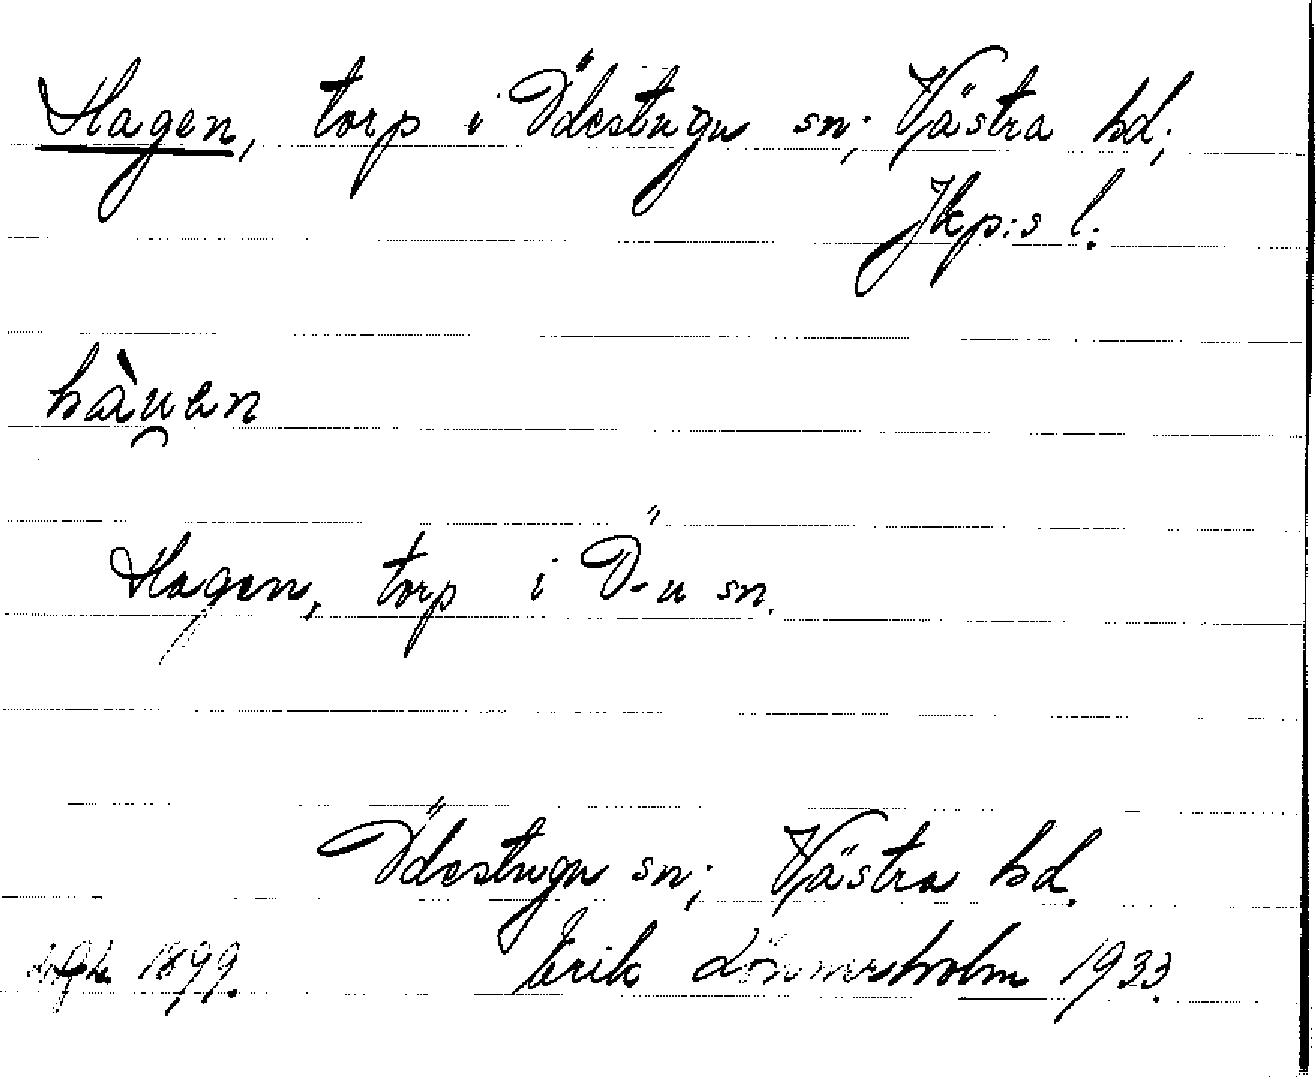 Hagen, torp i Ödestugu sn; Västra hd;
Jkp:s l.
hàu̯en
Hagen, torp i Ö-u sn.
Ödestugu sn; Västra hd.
1899. Erik Lönnersholm 1933.